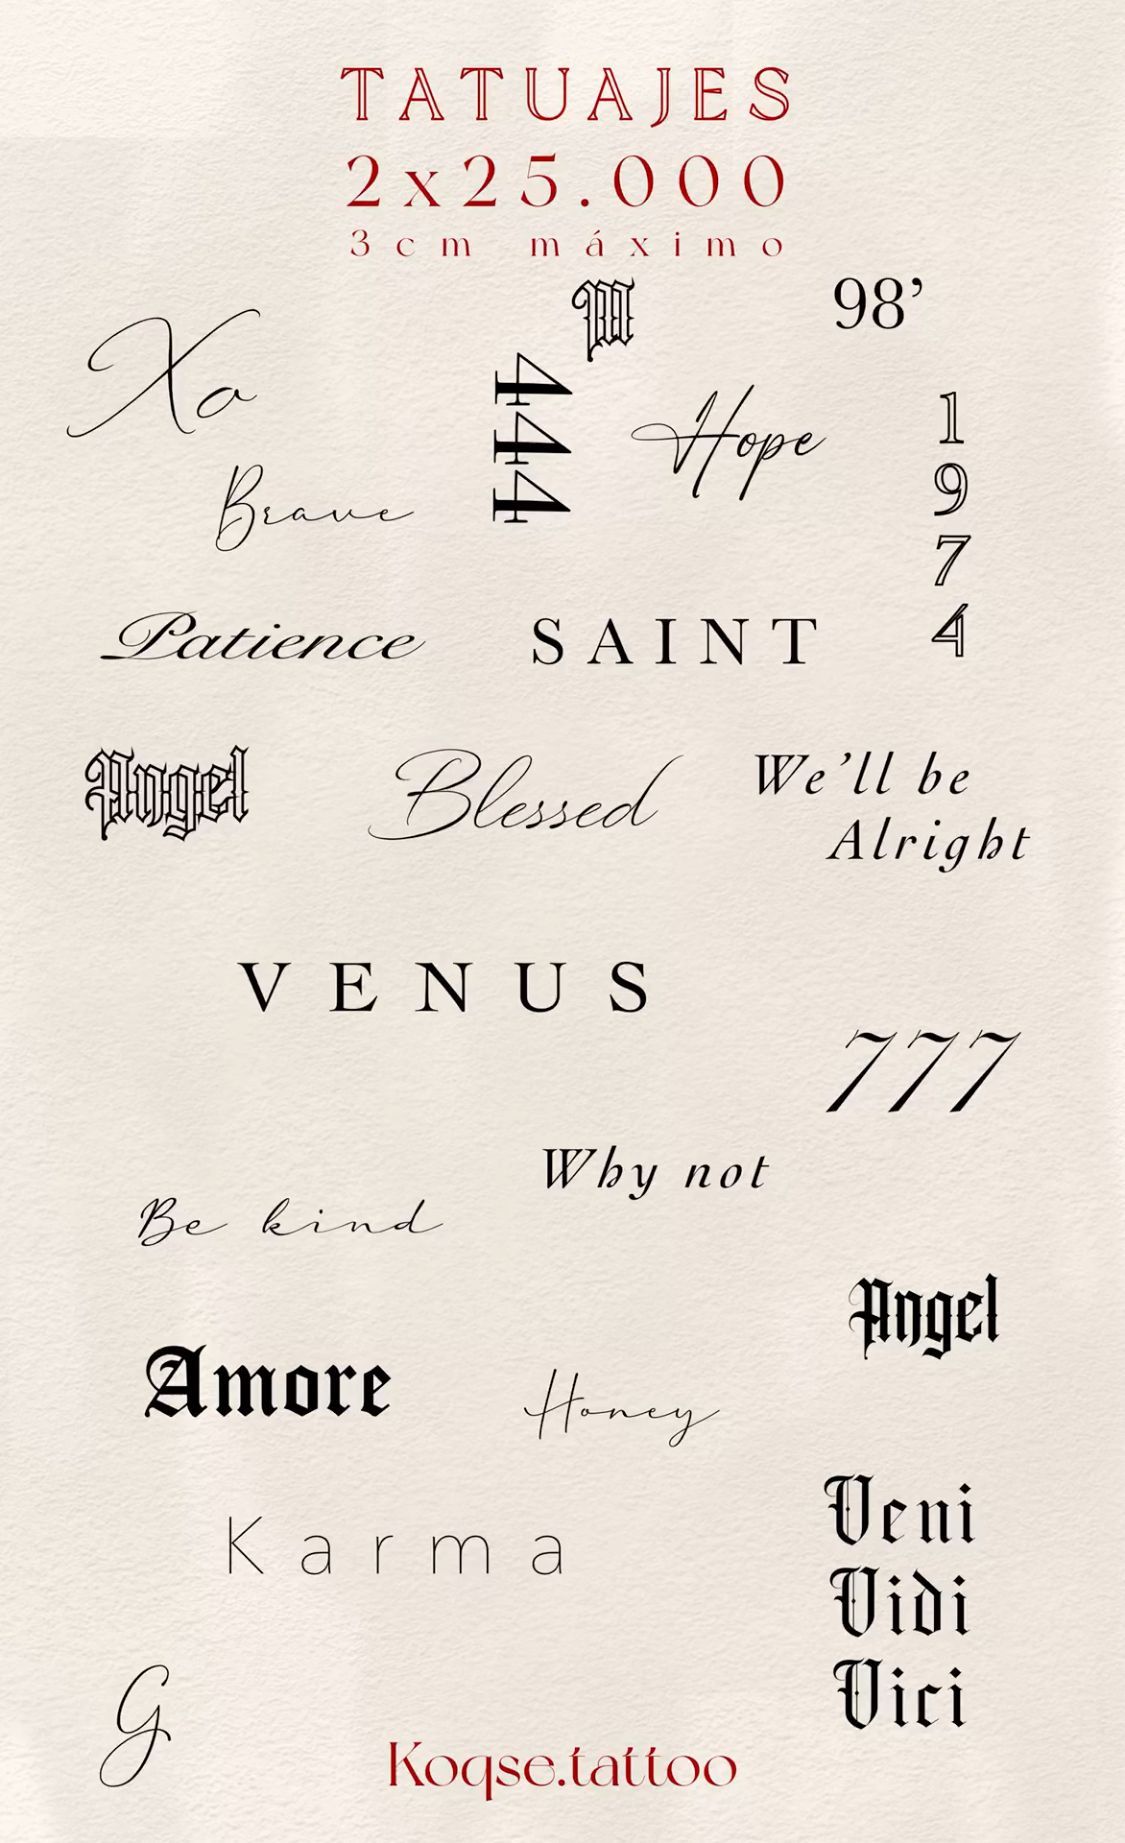 TATUAJES
2x25.000
3cm máximo
M
98’
Xo
444
Hope
1
9
7
4
Brave
Patience
SAINT
Angel
Blessed
We’ll be
Alright
VENUS
777
Why not
Be kind
Angel
Amore
Honey
Veni
Vidi
Vici
Karma
G
Koqse.tattoo